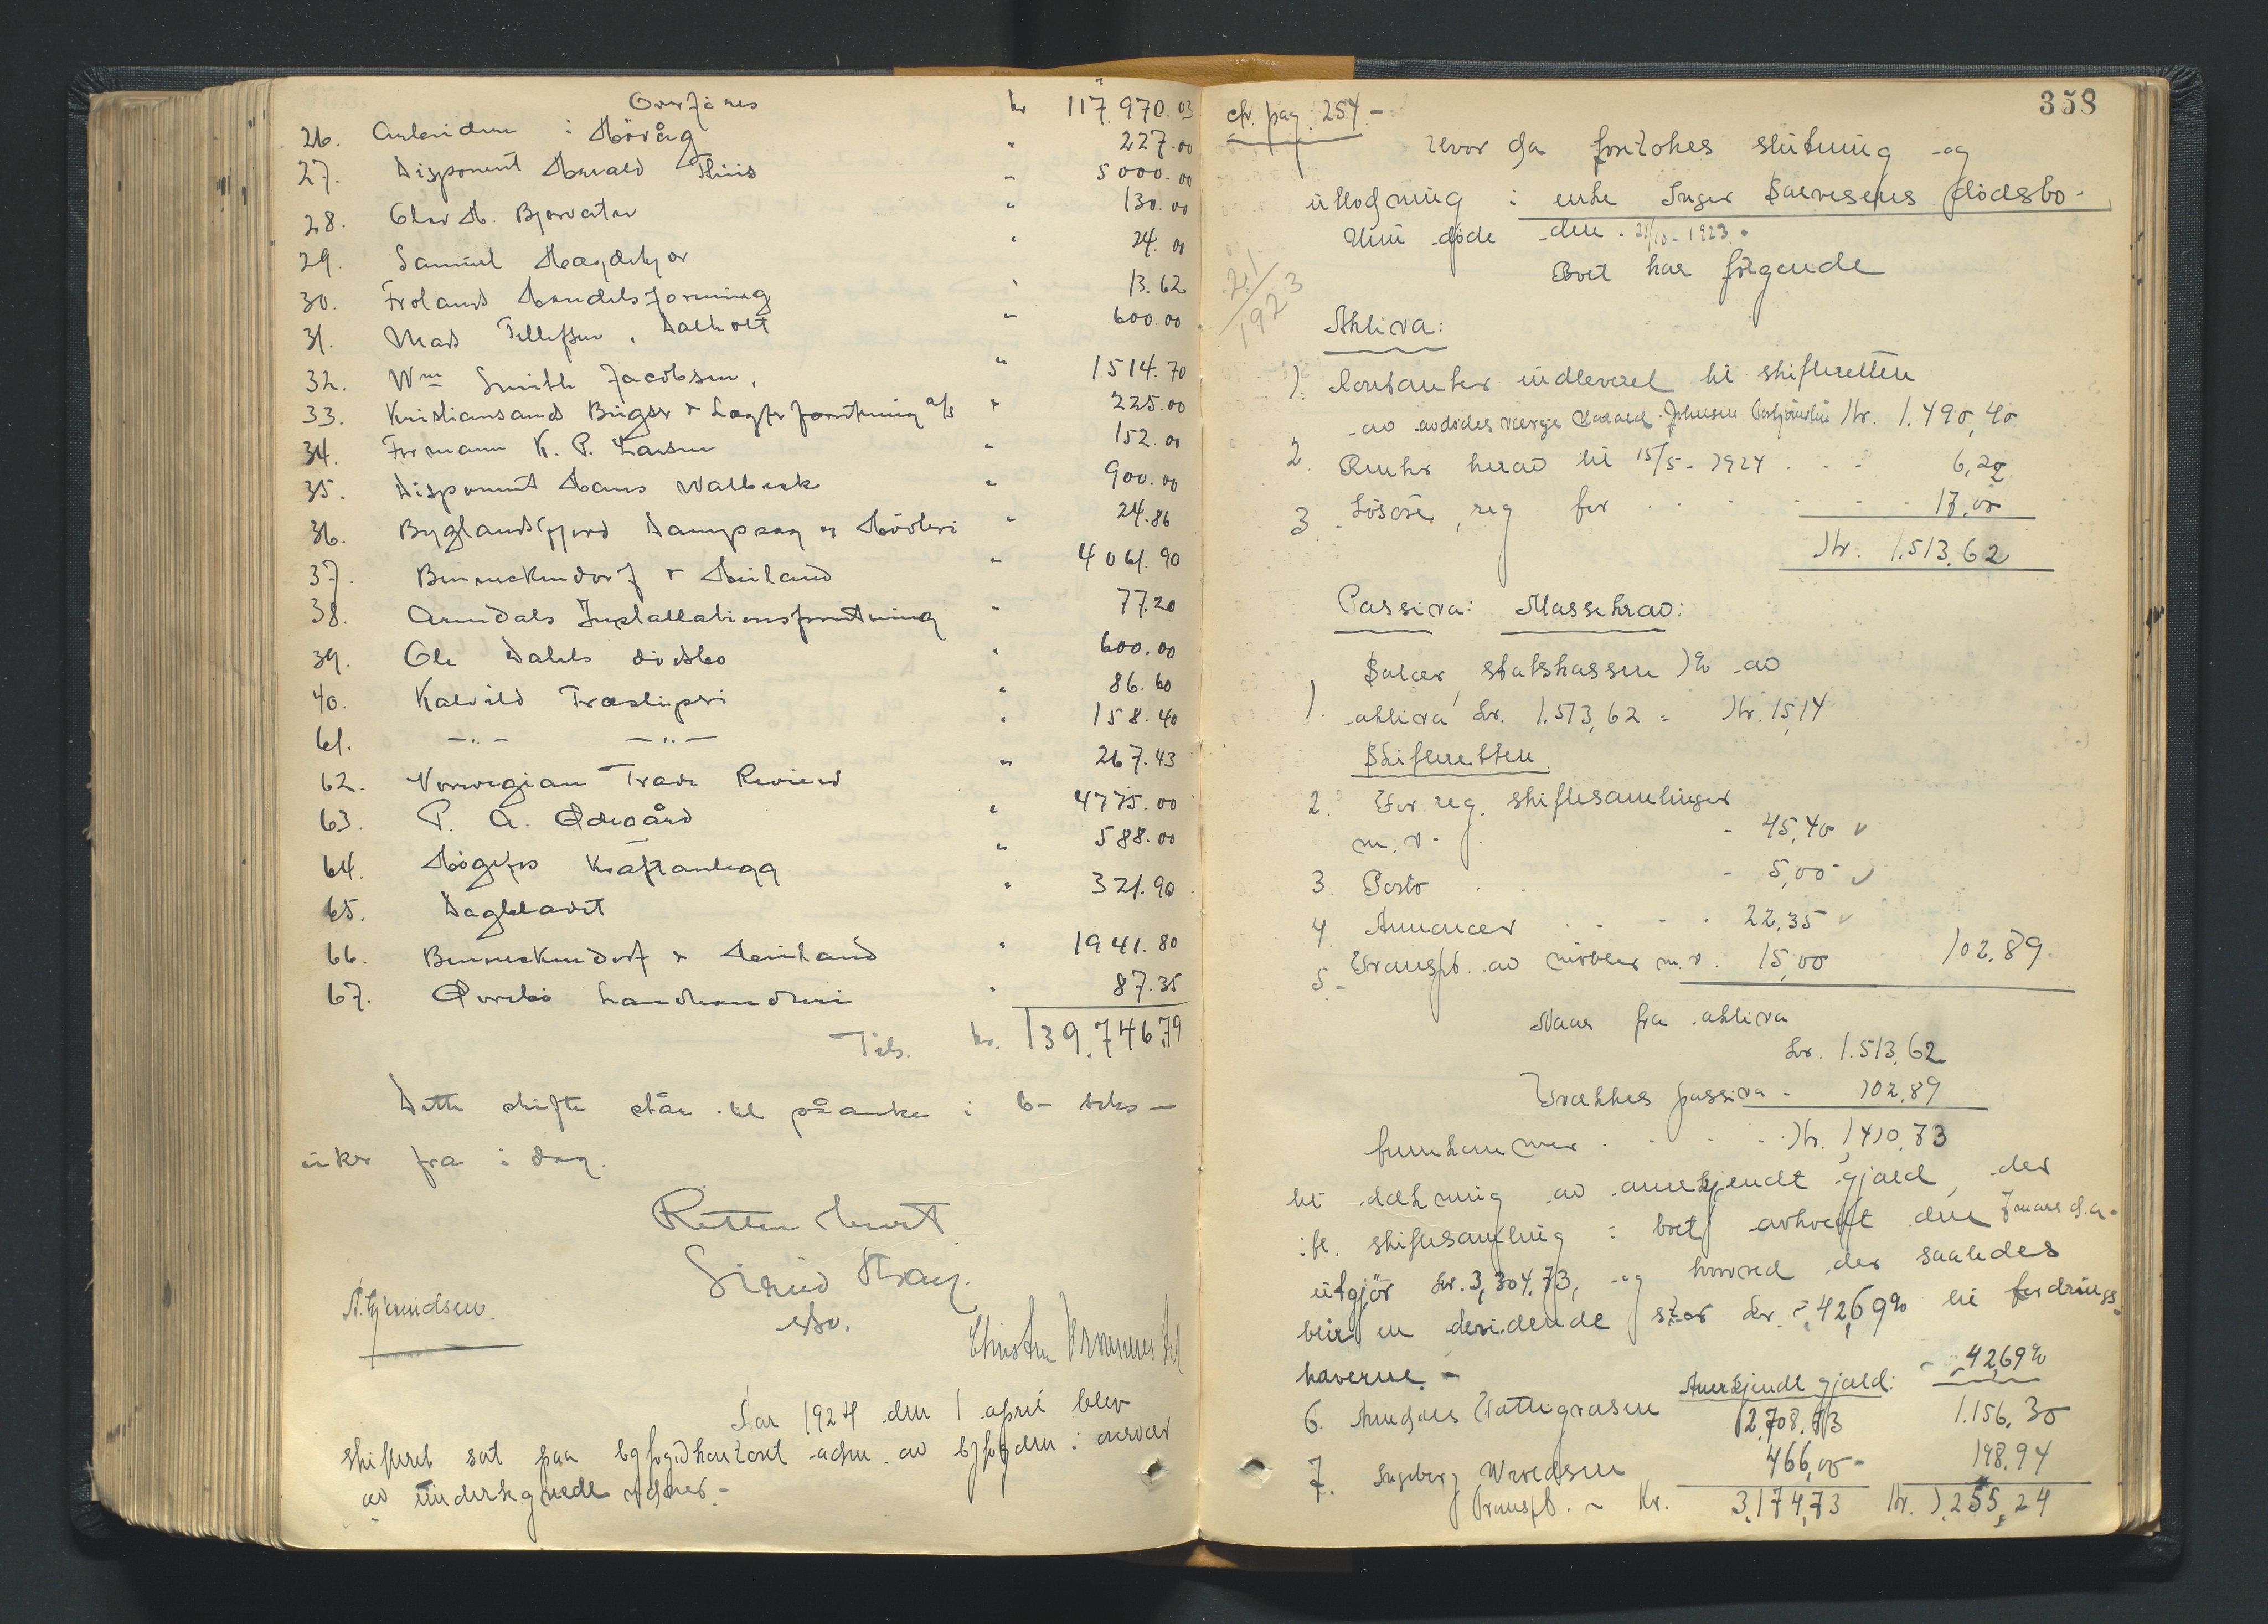 Overføres kr 117.970.03
26. Arbeidere i Hövåg " 227.00
27. Disponent Harald Thiis " 5000.00
28. Olav H. Bjorvatn " 130.00
29. Samuel " 24.00
30. Frolands Handelsforening " 13.62
31. Mads Tellefsen, Dalholt " 600.00
32. Wm Smith Jacobsen, " 1514.70
33. Kristiansands Bügser & Lægterforretning a/s " 225.00
34. Formann K. P. Larsen " 152.00
35. Disponent Hans Walbeck " 900.00
36. Byglandsfjord Dampsag og Høvleri " 24.86
37. Benneckendorf & Heiland " 4061.90
38. Arendals Installationsforretning " 77.20
39. Ole Dahls dødsbo " 600.00
40. Kalvild Træsliperi " 86.60
61. —"— —"— " 158.40
62. Norwegian Trade Review " 267.43
63. P. A. Ødegård " 4775.00
64. Høgefos Kraftanlegg " 588.00
65. Dagbladet " 321.90
66. Benneckendorf & Heiland " 1941.80
67. Øvrebø Landhandleri " 87.35
Tils. kr. 139.746.79
Dette skifte står til påanke i 6- seks-
uker fra i dag.
Retten hevet
Sigurd Stray.
A. Gjermundsen.
Christen
Aar 1924 den 1 april blev
skifteret sat paa byfogdkontoret adm. av byfogden i overvær
av undertegnede vidner.-
358
cfr. pag. 254.-
Hvor da foretokes slutning og
utlodning i enke Inger Salvesens dødsbo-
Hun døde den 21/10-1923.
Boet har følgende
21/1923
Aktiva:
1. Kontanter indleveret til skifteretten
av avdødes værge Harald Johnsen kr. 1.490,40
2. Renter herav til 15/5-1924 . . - 6,22
3. Løsøre, reg for . . . - - . 17,00
kr. 1.513,62
Passiva: Massekrav:
Salær, statskassen 1% av
1. aktiva kr. 1.513,62 = kr. 15,14
Skifteretten
2. For reg. skiftesamlinger
m.v. - 45,40 v
3. Porto . . - 5,00 v
4. Annoncer . - - . 22,35 v
5.- Transpt. av møbler m.v. 15,00 102,89
Naar fra aktiva
kr. 1.513,62
Trækkes passiva - 102,89
fremkommer . . - - . kr. 1,410,73
til dækning av anerkjendt gjæld, der
ifl. skiftesamling i boet avholdt den 7 mars d.a.
utgjør kr. 3,304.73, og hvorved der saaledes
blir en devidende stor kr. - 42,69% til fordrings-
haverne. -
Anerkjendt gjæld: - 42,69%
6. Arendals Fattigvæsen 2.708.73 1.156,30
7. Ingeborg 466,00- 198,94
Transpt. ~ Kr. 3,174,73 kr. 1,355,24